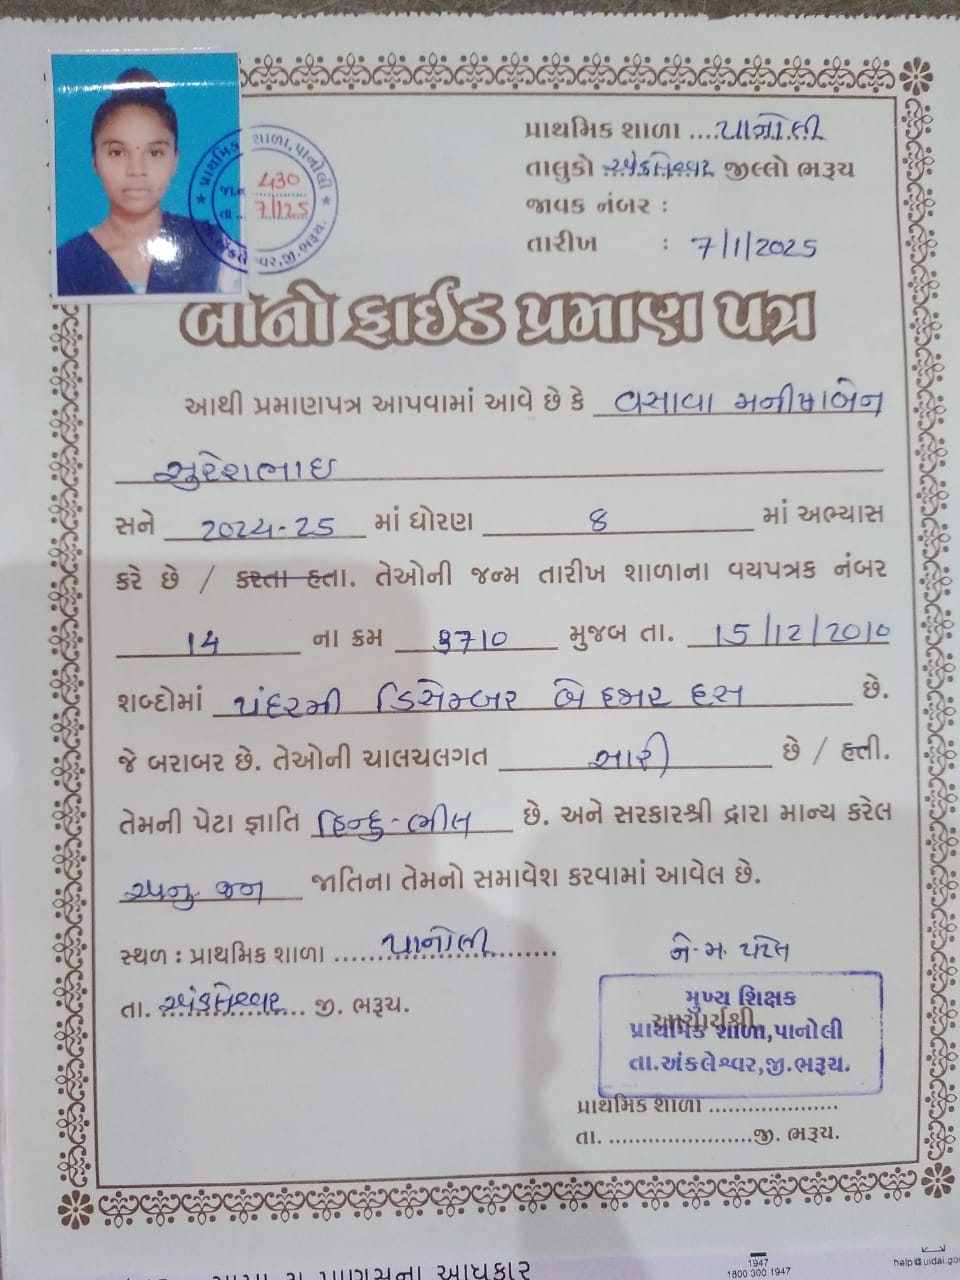 પ્રાથમિક શાળા ....પાનોલી
તાલુકો અંકલેશ્વર જીલ્લો ભરૂચ
જાવક નંબર :
તારીખ : 7/1/2025
પ્રાથમિક શાળા, પાનોલી
જા.નં 430
તા.. 7/1/25
તા.અંકલેશ્વર,જી.ભરૂચ.
બોનો ફાઈડ પ્રમાણ પત્ર
આથી પ્રમાણપત્ર આપવામાં આવે છે કે વસાવા મનીષાબેન
સુરેશભાઇ
સને 2024-25 માં ધોરણ 8 માં અભ્યાસ
કરે છે / કરતા હતા. તેઓની જન્મ તારીખ શાળાના વયપત્રક નંબર
14 ના ક્રમ 3710 મુજબ તા. 15/12/2010
શબ્દોમાં પંદરમી ડિસેમ્બર બે હજાર દસ છે.
જે બરાબર છે. તેઓની ચાલચલગત સારી છે / હતી.
તેમની પેટા જ્ઞાતિ હિન્દુ-ભીલ છે. અને સરકારશ્રી દ્વારા માન્ય કરેલ
અનુ. જન જાતિના તેમનો સમાવેશ કરવામાં આવેલ છે.
સ્થળ : પ્રાથમિક શાળા ....પાનોલી....
તા. અંકલેશ્વર... જી. ભરૂચ.
ને.મ. પટેલ
મુખ્ય શિક્ષક
આચાર્યશ્રી
પ્રાથમિક શાળા,પાનોલી
તા.અંકલેશ્વર,જી.ભરૂચ.
પ્રાથમિક શાળા ....................
તા. ......................જી. ભરૂચ.
1947
1800 300 1947